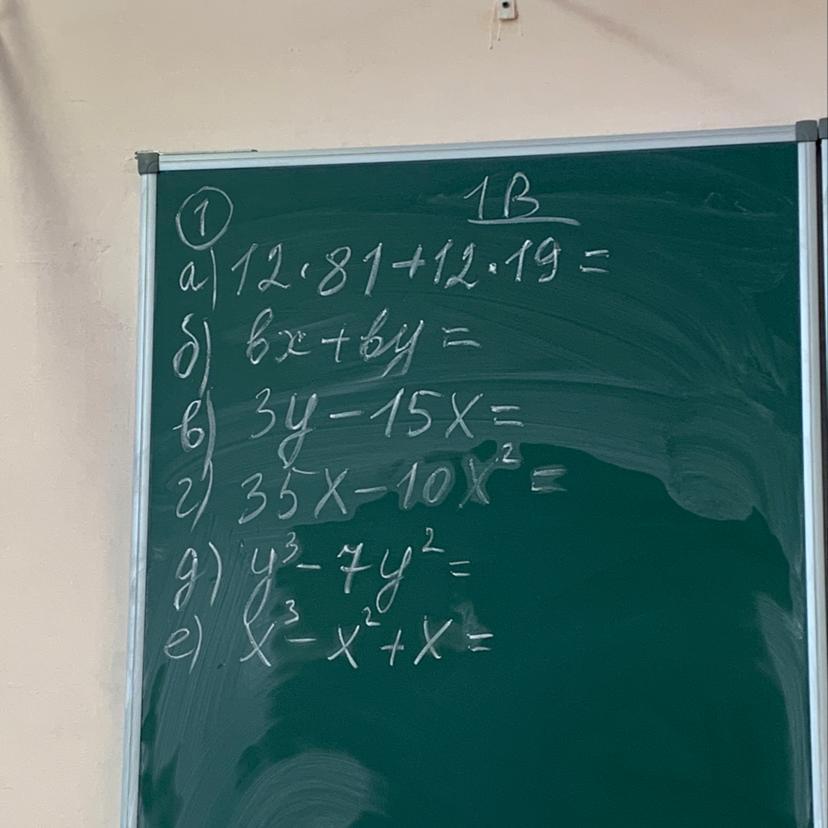 1В
①
а) 12·81+12·19=
б) bx+by=
в) 3y-15x=
г) 35x-10x²=
д) y³-7y²=
е) x³-x²+x=